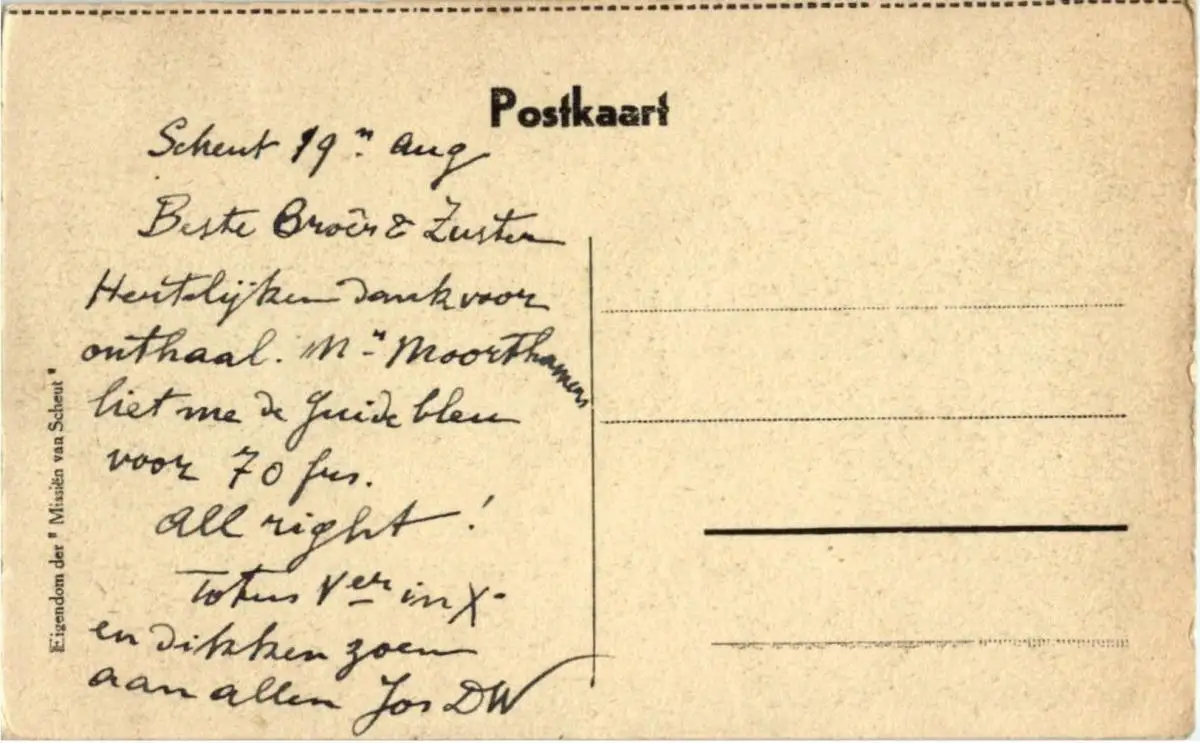 Postkaart
Scheut 19ⁿ aug
Beste Broêr & Zuster
Hertelijken dank voor
onthaal. Mⁿ Moorthamers
liet me de Guide bleu
voor 70 frs.
All right !
Totus Vᵉʳ in X
en dikken zoen
aan allen Jos DW
Eigendom der " Missiën van Scheut "